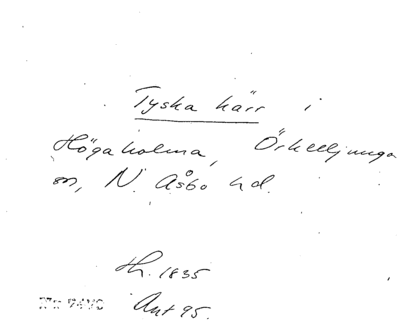 Tyska kärr i
Högaholma, Örkelljunga
sn, N. Åsbo hd.
Th. 1835
Ant 95.